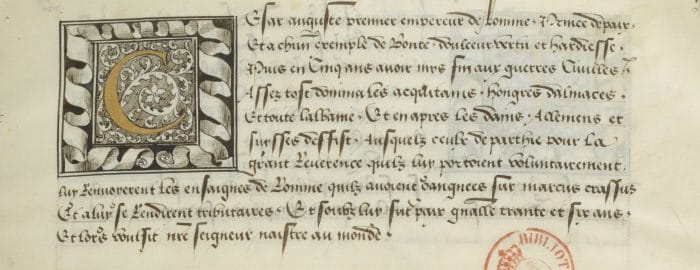 Cesar auguste premier empereur de Romme . Prince de paix .
Et a chun exemple de Bonte . doulceur vertu et hardiesse .
Puis en Cinq ans avoir mys fin aux guerres Civilles .
Assez tost domina les acquitains . hongres dalmaces .
Et toute lalbanie . Et en apres les danis . Allemens et
suysses deffist . Ausquelz ceulx de parthie pour La
grant Reverence quilz luy portoient voluntairement .
luy Renvoyerent les ensaignes de Romme quilz avoient gaingnees sur marcus crassus
Et a luy se Rendirent tributaires . Et soubz luy fut paix trante et six ans .
Et lors voulsit nre seigneur naistre au monde .
BIBLIOT